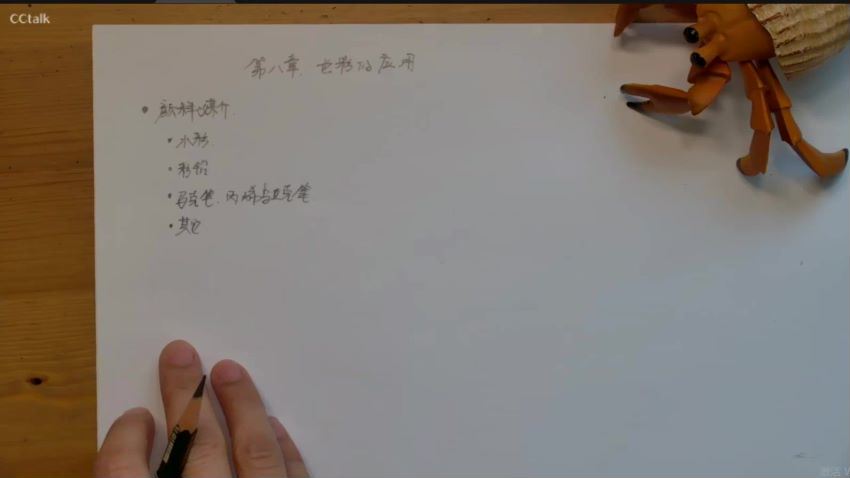 CCtalk
第八章. 色彩的应用
• 颜料与媒介.
• 水彩.
• 彩铅
• 马克笔、丙烯马克笔
• 其它
激活 W